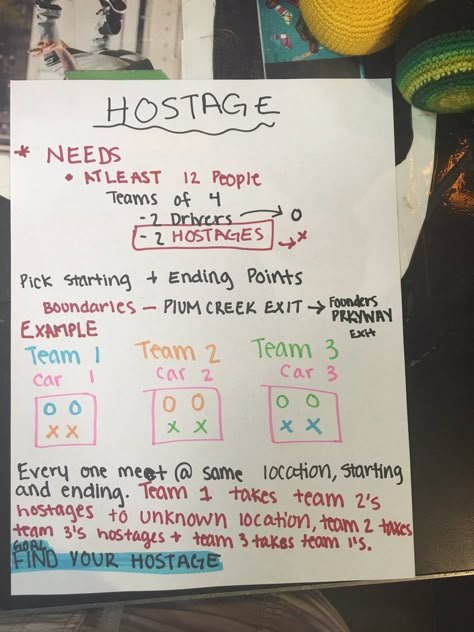 HOSTAGE
* NEEDS
• ATLEAST 12 PEOPLE
Teams of 4
- 2 Drivers → O
- 2 HOSTAGES → X
Pick starting + Ending Points
Boundaries — PlUM CREEK EXIT → Founders
PRKYWAY
Exit
EXAMPLE
Team 1 Team 2 Team 3
Car 1 Car 2 Car 3
O O O O O O
X X X X X X
Every one meet @ same location, starting
and ending. Team 1 takes team 2's
hostages to unknown location, team 2 takes
team 3's hostages + team 3 takes team 1's.
GOAL
FIND YOUR HOSTAGE